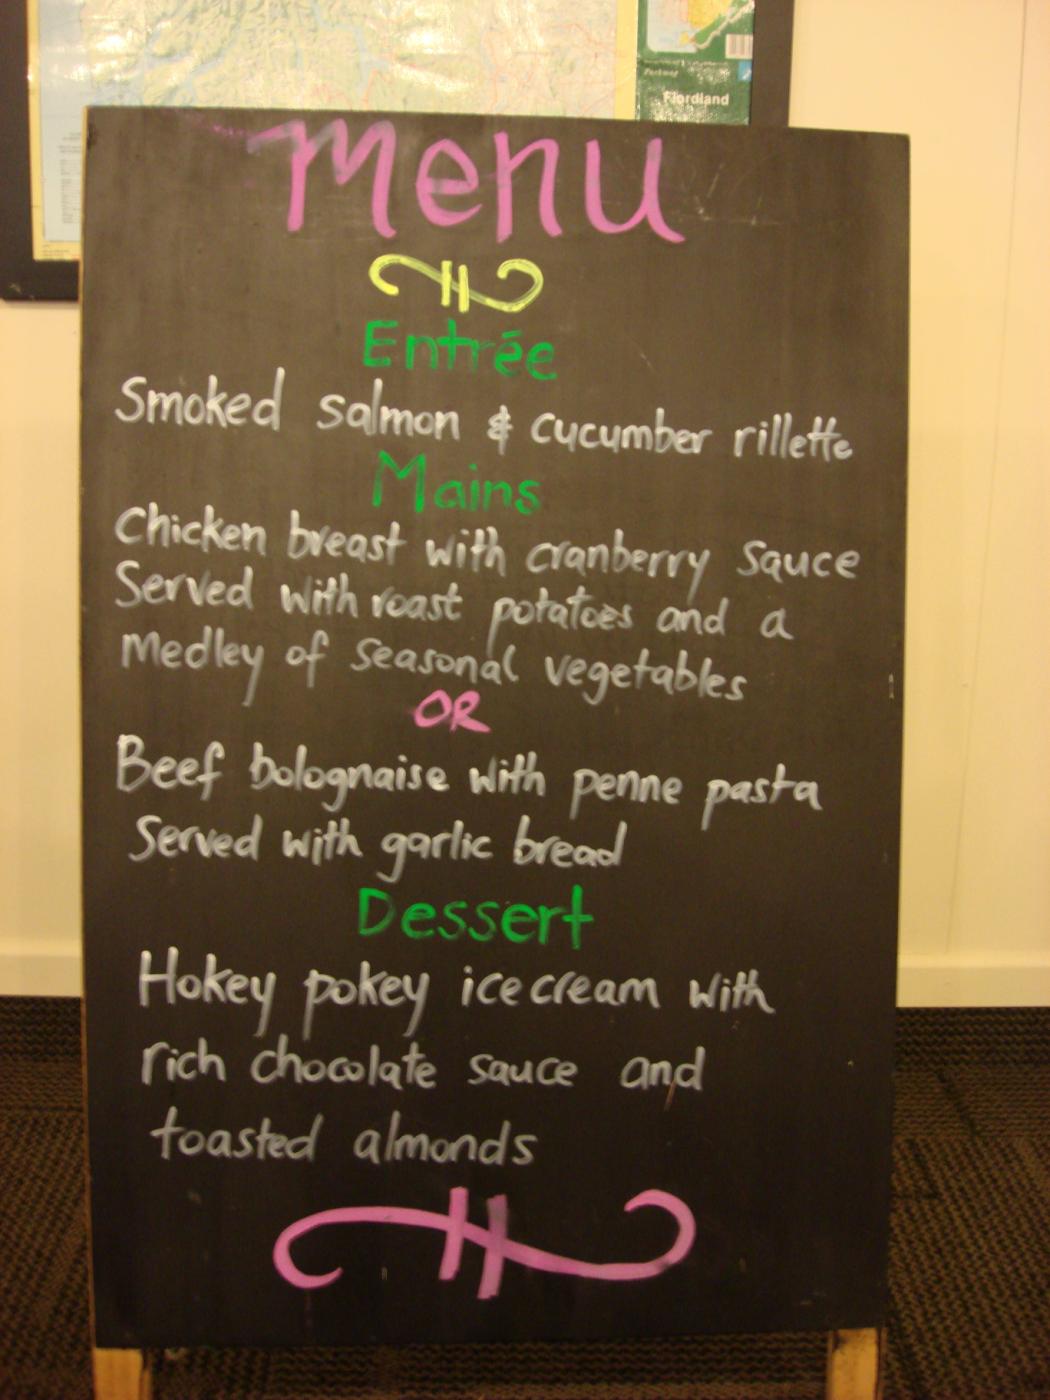 Fiordland
Menu
Entrée
Smoked salmon & cucumber rillette
Mains
Chicken breast with cranberry sauce
Served with roast potatoes and a
Medley of seasonal vegetables
OR
Beef bolognaise with penne pasta
Served with garlic bread
Dessert
Hokey pokey ice cream with
rich chocolate sauce and
toasted almonds